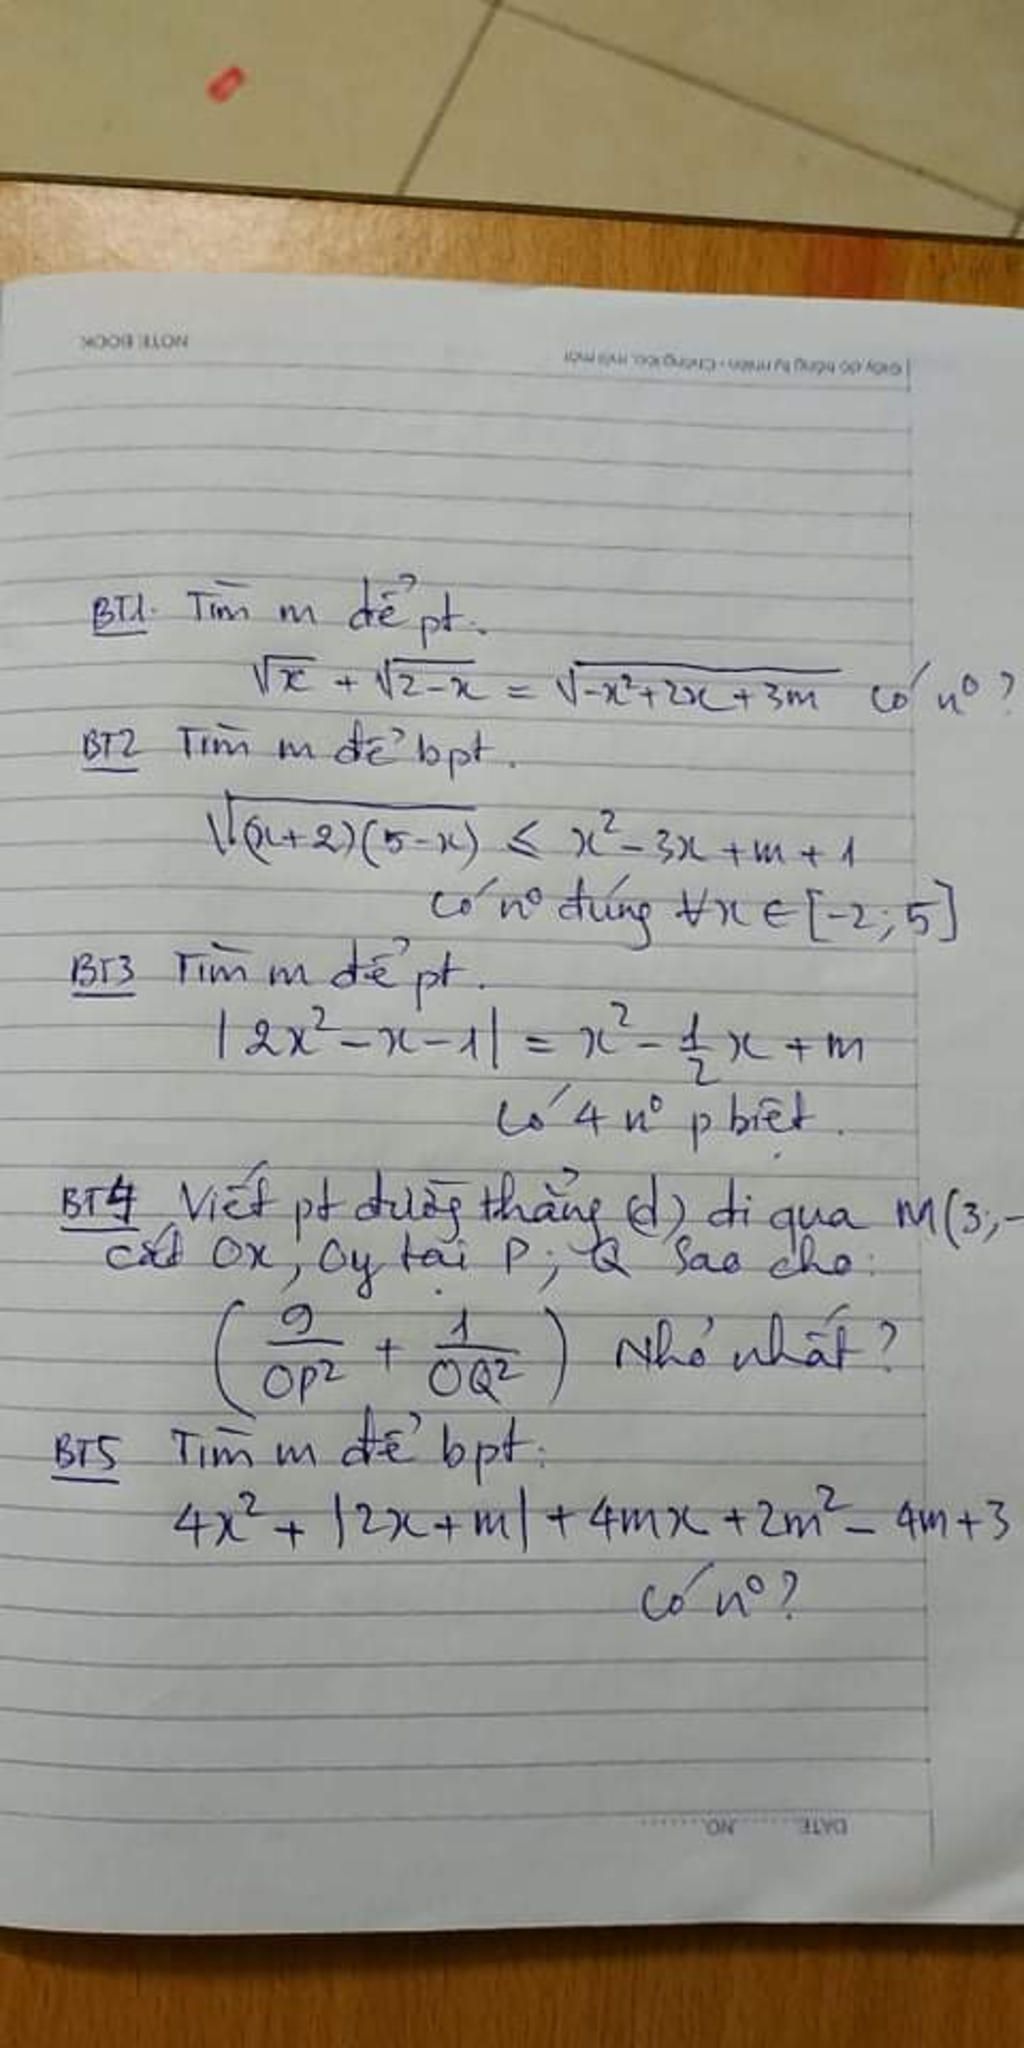 NOTE BOOK
Giấy độ trắng tự nhiên - Chống lóa, mỏi mắt
BT1. Tìm m để pt.
√x + √2-x = √-x²+2x+3m có n⁰?
BT2 Tìm m để bpt.
√(x+2)(5-x) ≤ x²-3x+m+1
có n⁰ đúng ∀x ∈ [-2; 5]
BT3 Tìm m để pt.
|2x²-x-1| = x² - 1/2 x + m
có 4 n⁰ p biệt.
BT4 Viết pt đường thẳng (d) đi qua M(3; -
cắt Ox, Oy tại P; Q sao cho:
(9/OP² + 1/OQ²) Nhỏ nhất?
BT5 Tìm m để bpt:
4x² + |2x+m| + 4mx + 2m² - 4m + 3
có n⁰?
DATE NO